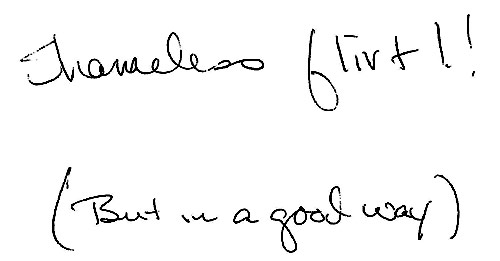 Shameless flirt!!
(But in a good way)